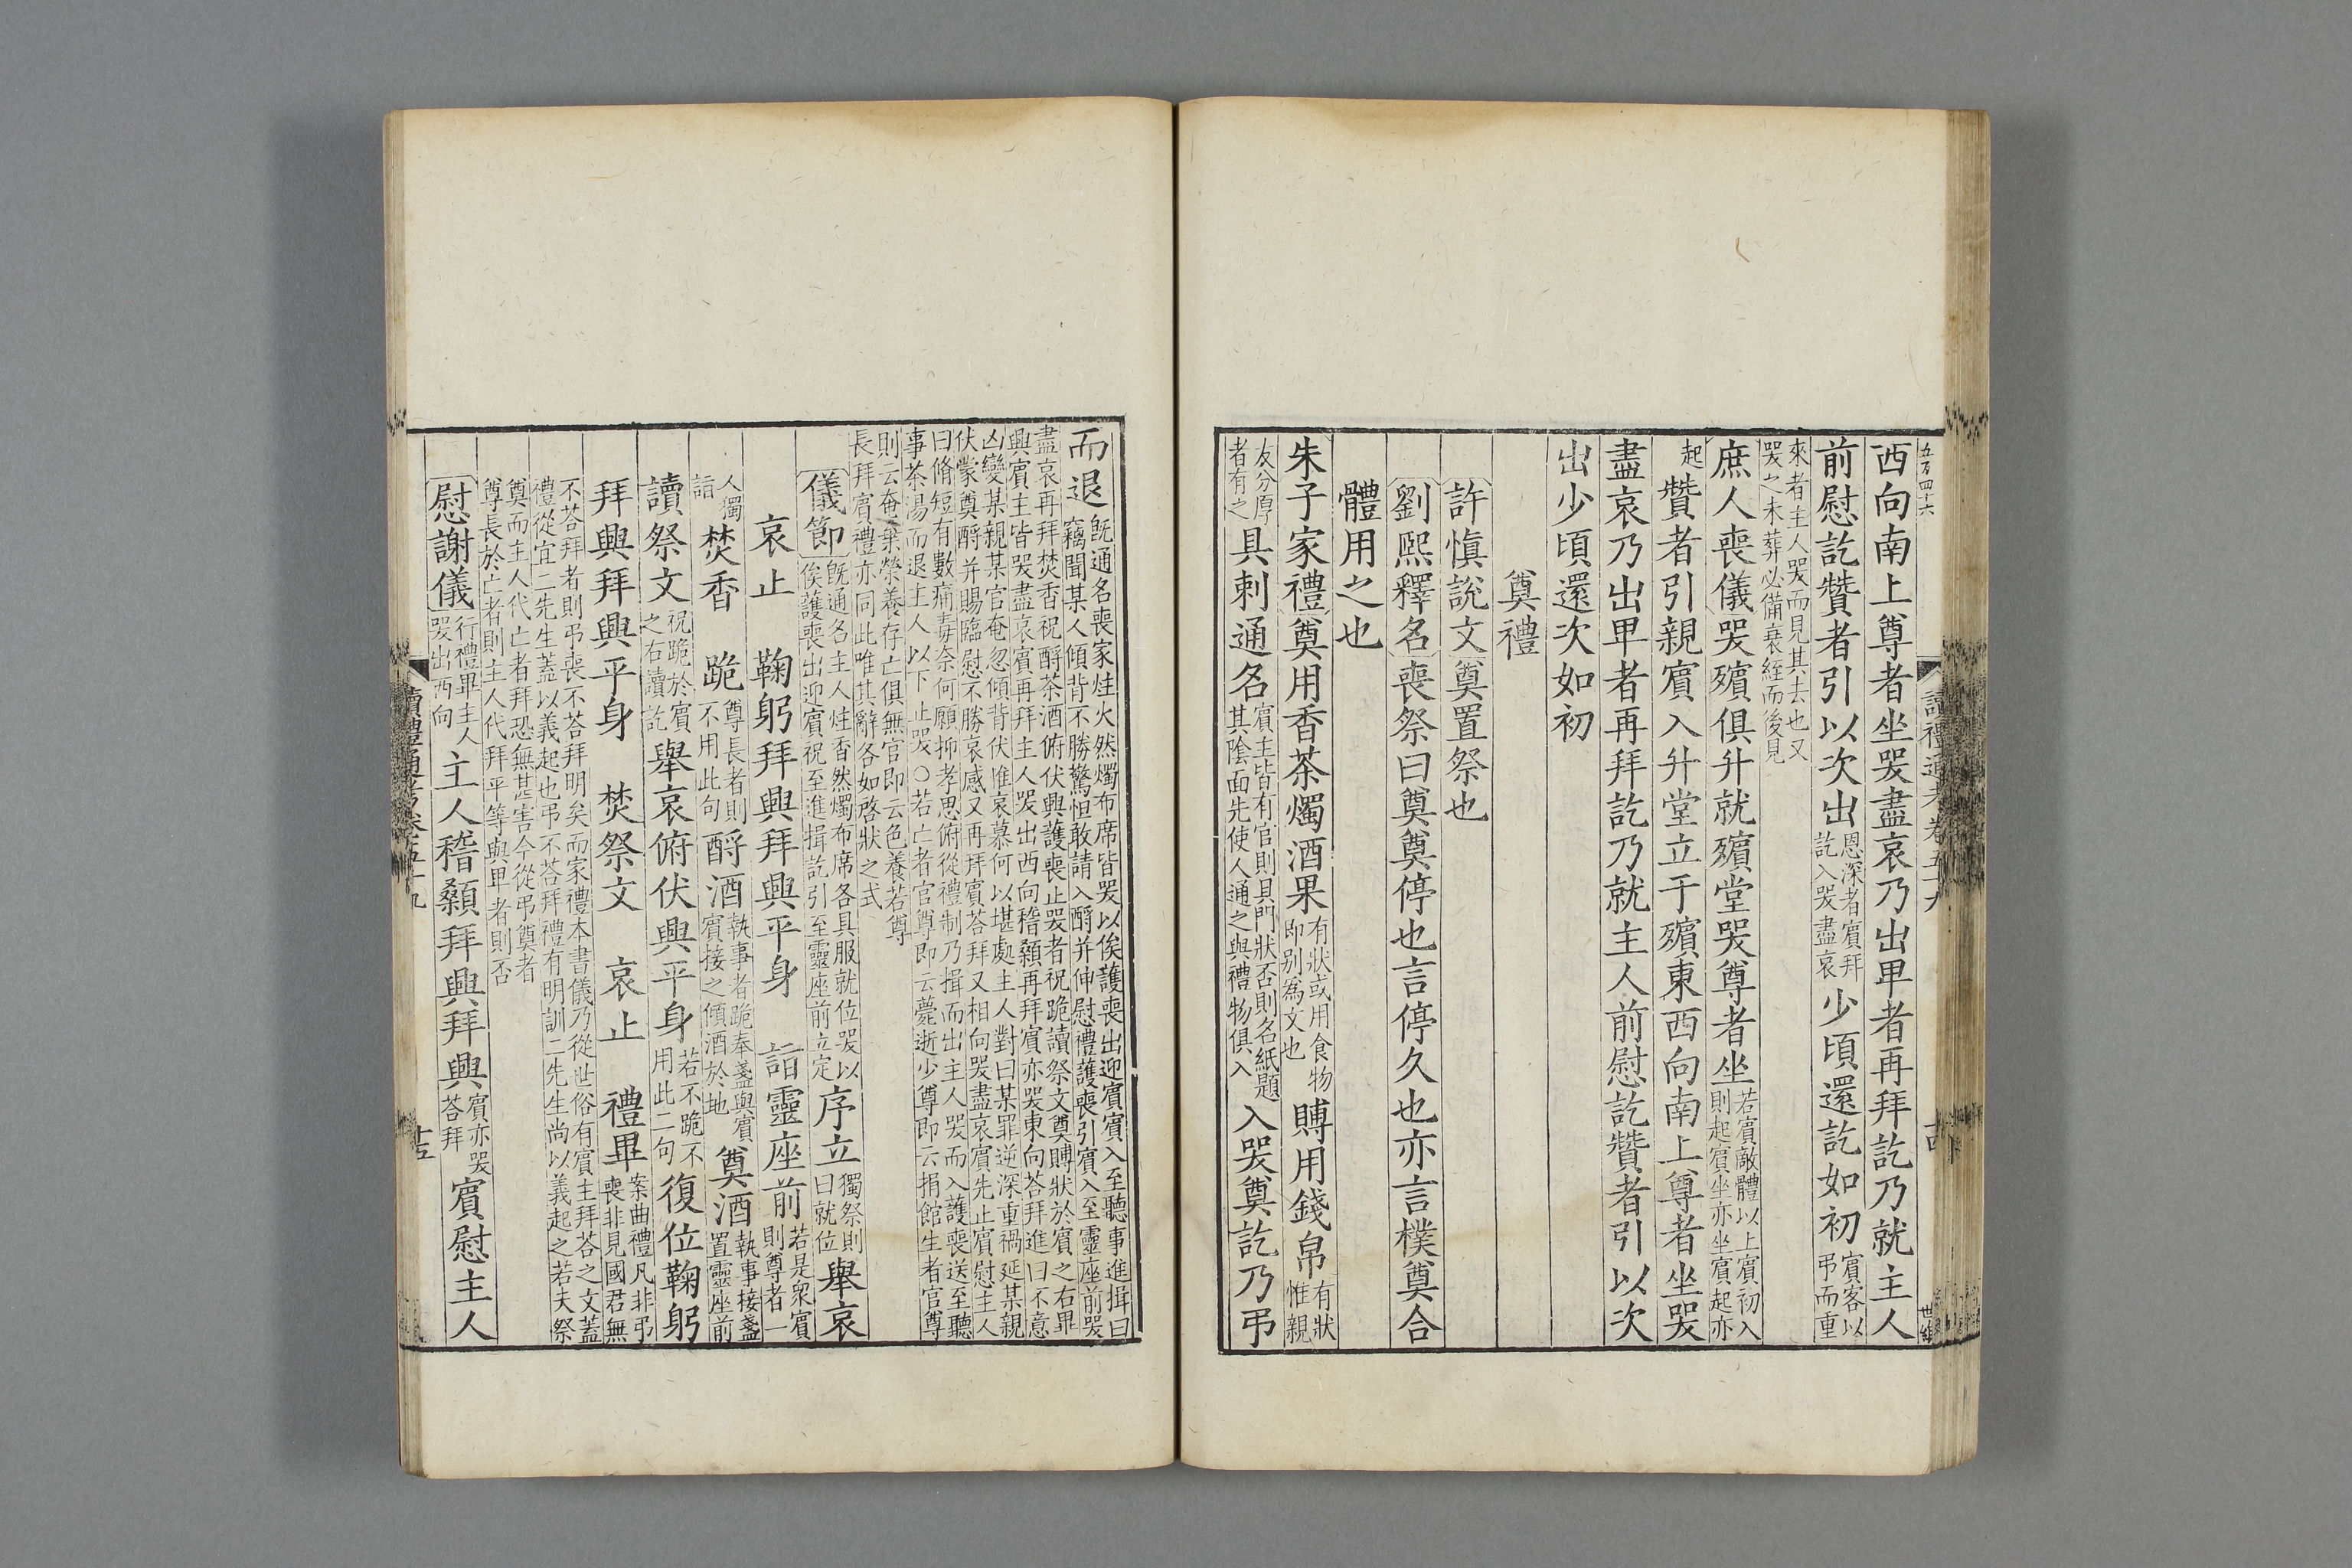 五百四十六
西向南上尊者坐哭盡哀乃出卑者再拜訖乃就主人
前慰訖贊者引以次出恩深者賓拜訖入哭盡哀少頃還訖如初賓客以弔而重
來者主人哭而見其去也又哭之未葬必備衰絰而後見
庶人喪儀哭殯俱升就殯堂哭尊者坐若賓敵體以上賓初入則起賓坐亦坐賓起亦
起贊者引親賓入升堂立于殯東西向南上尊者坐哭
盡哀乃出卑者再拜訖乃就主人前慰訖贊者引以次
出少頃還次如初
奠禮
許慎說文奠置祭也
劉熙釋名喪祭曰奠奠停也言停久也亦言樸奠合
體用之也
朱子家禮奠用香茶燭酒果有狀或用食物即別為文也賻用錢帛有狀惟親
友分厚者有之具刺通名賓主皆有官則具門狀否則名紙題其陰面先使人通之與禮物俱入入哭奠訖乃弔
而退既通名喪家炷火然燭布席皆哭以俟護喪出迎賓賓入至聽事進揖曰竊聞某人傾背不勝驚怛敢請入酹并伸慰禮護喪引賓入至靈座前哭
盡哀再拜焚香祝酹茶酒俯伏興護喪止哭者祝跪讀祭文奠賻狀於賓之右畢興賓主皆哭盡哀賓再拜主人哭出西向稽顙再拜賓亦哭東向荅拜進曰不意
凶變某親某官奄忽傾背伏惟哀慕何以堪處主人對曰某罪逆深重禍延某親伏蒙奠酹并賜臨慰不勝哀感又再拜賓荅拜又相向哭盡哀賓先止賓慰主人
曰脩短有數痛毒奈何願抑孝思俯從禮制乃揖而出主人哭而入護喪送至聽事茶湯而退主人以下止哭○若亡者官尊即云薨逝少尊即云捐館生者官尊
則云奄棄榮養存亡俱無官即云色養若尊長拜賓禮亦同此唯其辭各如啓狀之式
儀節既通名主人炷香然燭布席各具服就位哭以俟護喪出迎賓祝至進揖訖引至靈座前立定序立獨祭則曰就位舉哀
哀止 鞠躬拜興拜興平身 詣靈座前若是衆賓則尊者一
人獨詣焚香 跪尊長者則不用此句酹酒執事者跪奉盞與賓賓接之傾酒於地奠酒執事接盞置靈座前
讀祭文祝跪於賓之右讀訖舉哀俯伏興平身若不跪不用此二句復位鞠躬
拜興拜興平身 焚祭文 哀止 禮畢案曲禮凡非弔喪非見國君無
不荅拜者則弔喪不荅拜明矣而家禮本書儀乃從世俗有賓主拜荅之文蓋禮從宜二先生蓋以義起也弔不荅拜禮有明訓二先生尚以義起之若夫祭
奠而主人代亡者拜恐無甚害今從弔奠者尊長於亡者則主人代拜平等與卑者則否
慰謝儀行禮畢主人哭出西向主人稽顙拜興拜興賓亦哭荅拜賓慰主人